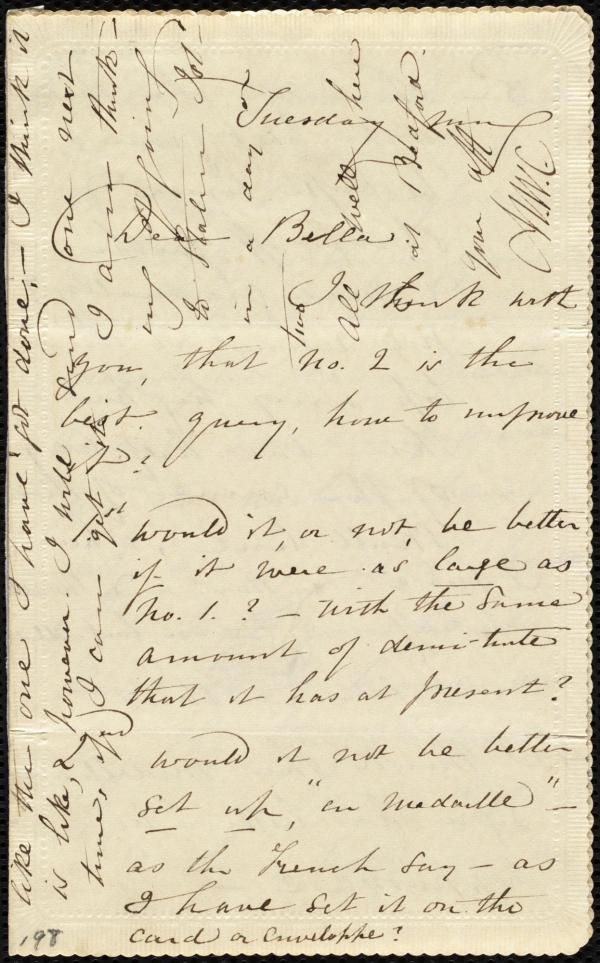 Tuesday mng
Dear Bella.
I think with
you, that No. 2 is the
best. query, how to improve
it?
1st would it, or not, be better
if it were as large as
No. 1.? — with the same
amount of demi-tinte
that it has at present?
2nd would it not be better
set up, "en medaille" —
as the French say — as
I have set it on the
card or enveloppe?
like the one I have got done, — I think it
is like, however. I will send one next
time, if I can get it.
I am think-
ing of going
to
in a day or
two
All well here
at Bedford.
your afft
W.W.C.
198